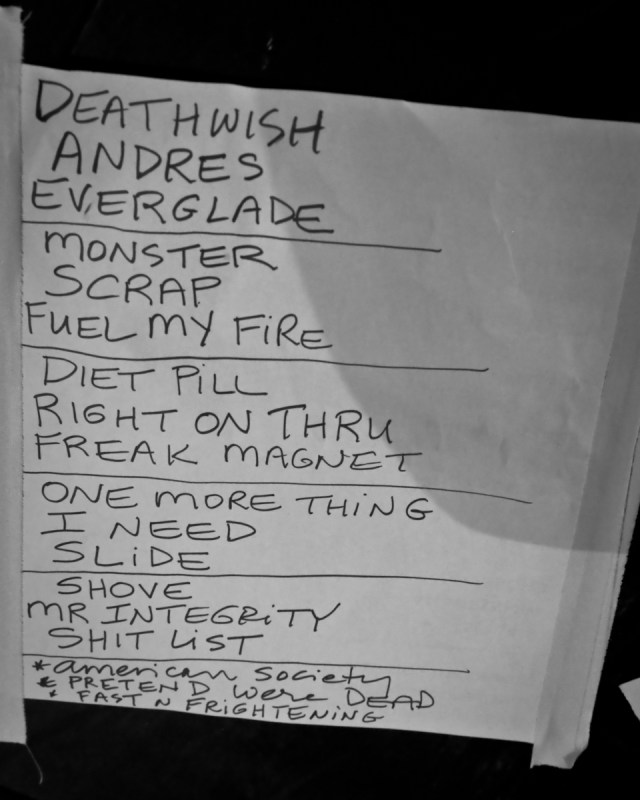 DEATHWISH
ANDRES
EVERGLADE
MONSTER
SCRAP
FUEL MY FIRE
DIET PILL
RIGHT ON THRU
FREAK MAGNET
ONE MORE THING
I NEED
SLIDE
SHOVE
MR INTEGRITY
SHIT LIST
* american society
* PRETEND were DEAD
* FAST N FRIGHTENING